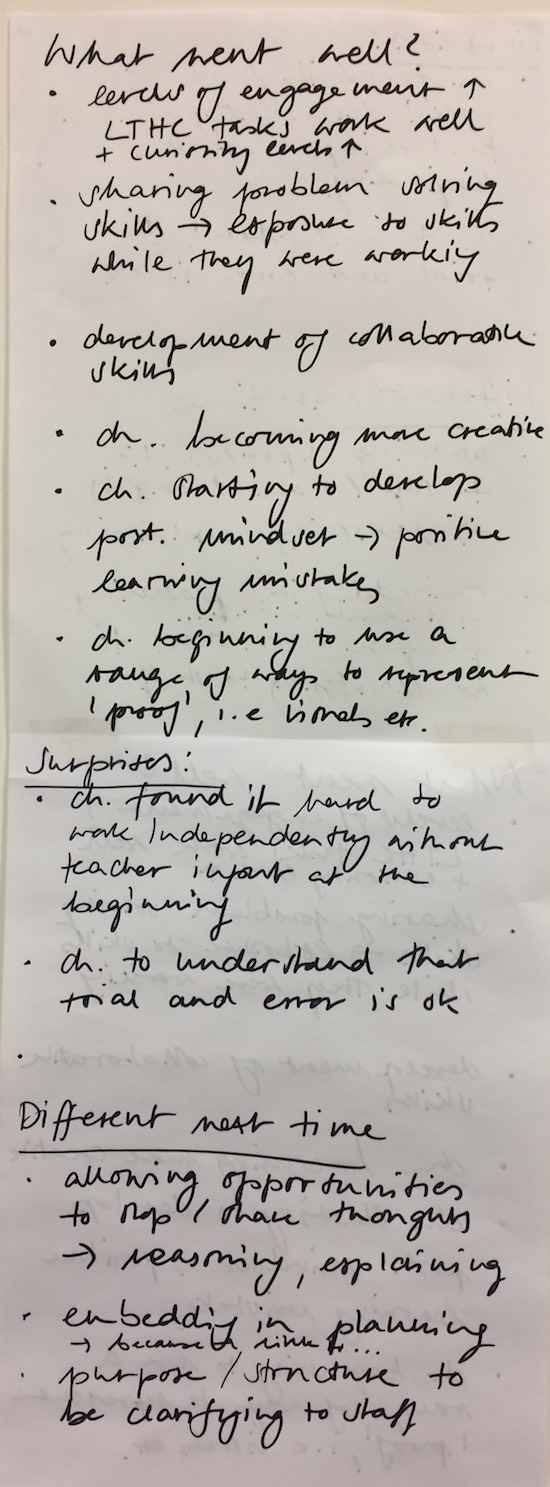 What went well?
• levels of engagement ↑
LTHC tasks work well
+ curiosity levels ↑
• sharing problem solving
skills → exposure to skills
while they were working
• development of collaborative
skills
• ch. becoming more creative
• ch. starting to develop
post. mindset → positive
learning mistakes
• ch. beginning to use a
range of ways to represent
'proof', i.e visuals etc.
Surprises:
• ch. found it hard to
work independently without
teacher input at the
beginning
• ch. to understand that
trial and error is ok
•
Different next time
• allowing opportunities
to stop / share thoughts
→ reasoning, explaining
• embedding in planning
→ because link to...
• purpose / structure to
be clarifying to staff